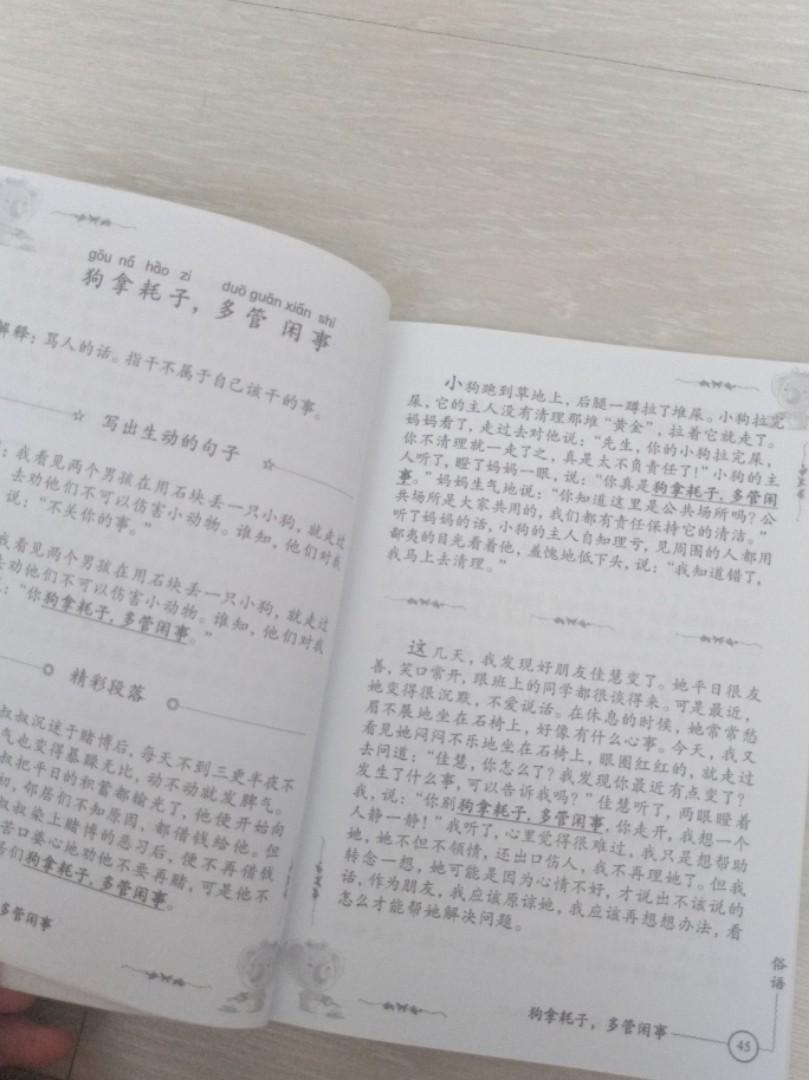 gǒu ná hào zi duō guǎn xián shì
狗拿耗子，多管闲事
解释：骂人的话。指干不属于自己该干的事。
写出生动的句子
：我看见两个男孩在用石块丢一只小狗，就走过
去劝他们不可以伤害小动物。谁知，他们对我
说：“不关你的事。”
我看见两个男孩在用石块丢一只小狗，就走过
去劝他们不可以伤害小动物。谁知，他们对我
：“你狗拿耗子，多管闲事。”
精彩段落
叔叔沉迷于赌博后，每天不到三更半夜不
气也变得暴躁无比，动不动就发脾气。
叔把平日的积蓄都输光了，他便开始向
初，邻居们不知原因，都借钱给他。但
叔叔染上赌博的恶习后，便不再借钱
苦口婆心地劝他不要再赌，可是他不
们狗拿耗子，多管闲事。
多管闲事
小狗跑到草地上，后腿一蹲拉了堆屎。小狗拉完
屎，它的主人没有清理那堆“黄金”，拉着它就走了。
妈妈看了，走过去对他说：“先生，你的小狗拉完屎，
你不清理就一走了之，真是太不负责任了！”小狗的主
人听了，瞪了妈妈一眼，说：“你真是狗拿耗子，多管闲
事。”妈妈生气地说：“你知道这里是公共场所吗？公
共场所是大家共用的，我们都有责任保持它的清洁。”
听了妈妈的话，小狗的主人自知理亏，见周围的人都用
鄙夷的目光看着他，羞愧地低下头，说：“我知道错了，
我马上去清理。”
这几天，我发现好朋友佳慧变了。她平日很友
善，笑口常开，跟班上的同学都很谈得来。可是最近，
她变得很沉默，不爱说话。在休息的时候，她常常愁
眉不展地坐在石椅上，好像有什么心事。今天，我又
看见她闷闷不乐地坐在石椅上，眼圈红红的，就走过
去问道：“佳慧，你怎么了？我发现你最近有点变了？
发生了什么事，可以告诉我吗？”佳慧听了，两眼瞪着
我，说：“你别狗拿耗子，多管闲事，你走开，我想一个
人静一静！”我听了，心里觉得很难过，我只是想帮助
她，她不但不领情，还出口伤人，我不再理她了。但我
转念一想，她可能是因为心情不好，才说出不该说的
话，作为朋友，我应该原谅她，我应该再想想办法，看
怎么才能帮她解决问题。
俗语
狗拿耗子，多管闲事
45